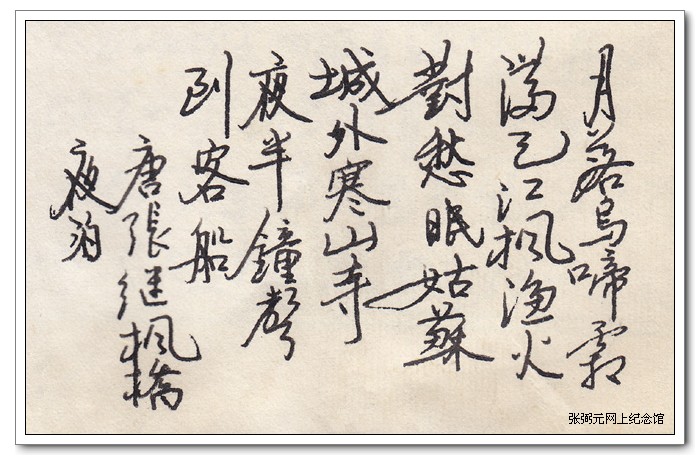 月落烏啼霜
滿天江楓漁火
對愁眠姑蘇
城外寒山寺
夜半鐘聲
到客船
唐張继楓橋
夜泊
张弼元网上纪念馆